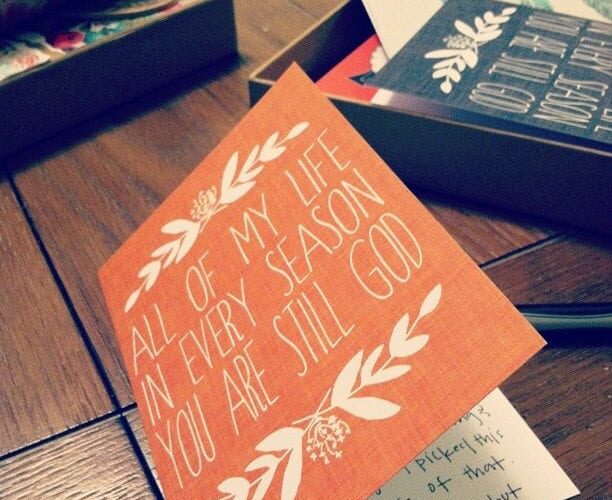 ALL OF MY LIFE
IN EVERY SEASON
YOU ARE STILL GOD
SEASON
STILL GOD
I picked this
of that